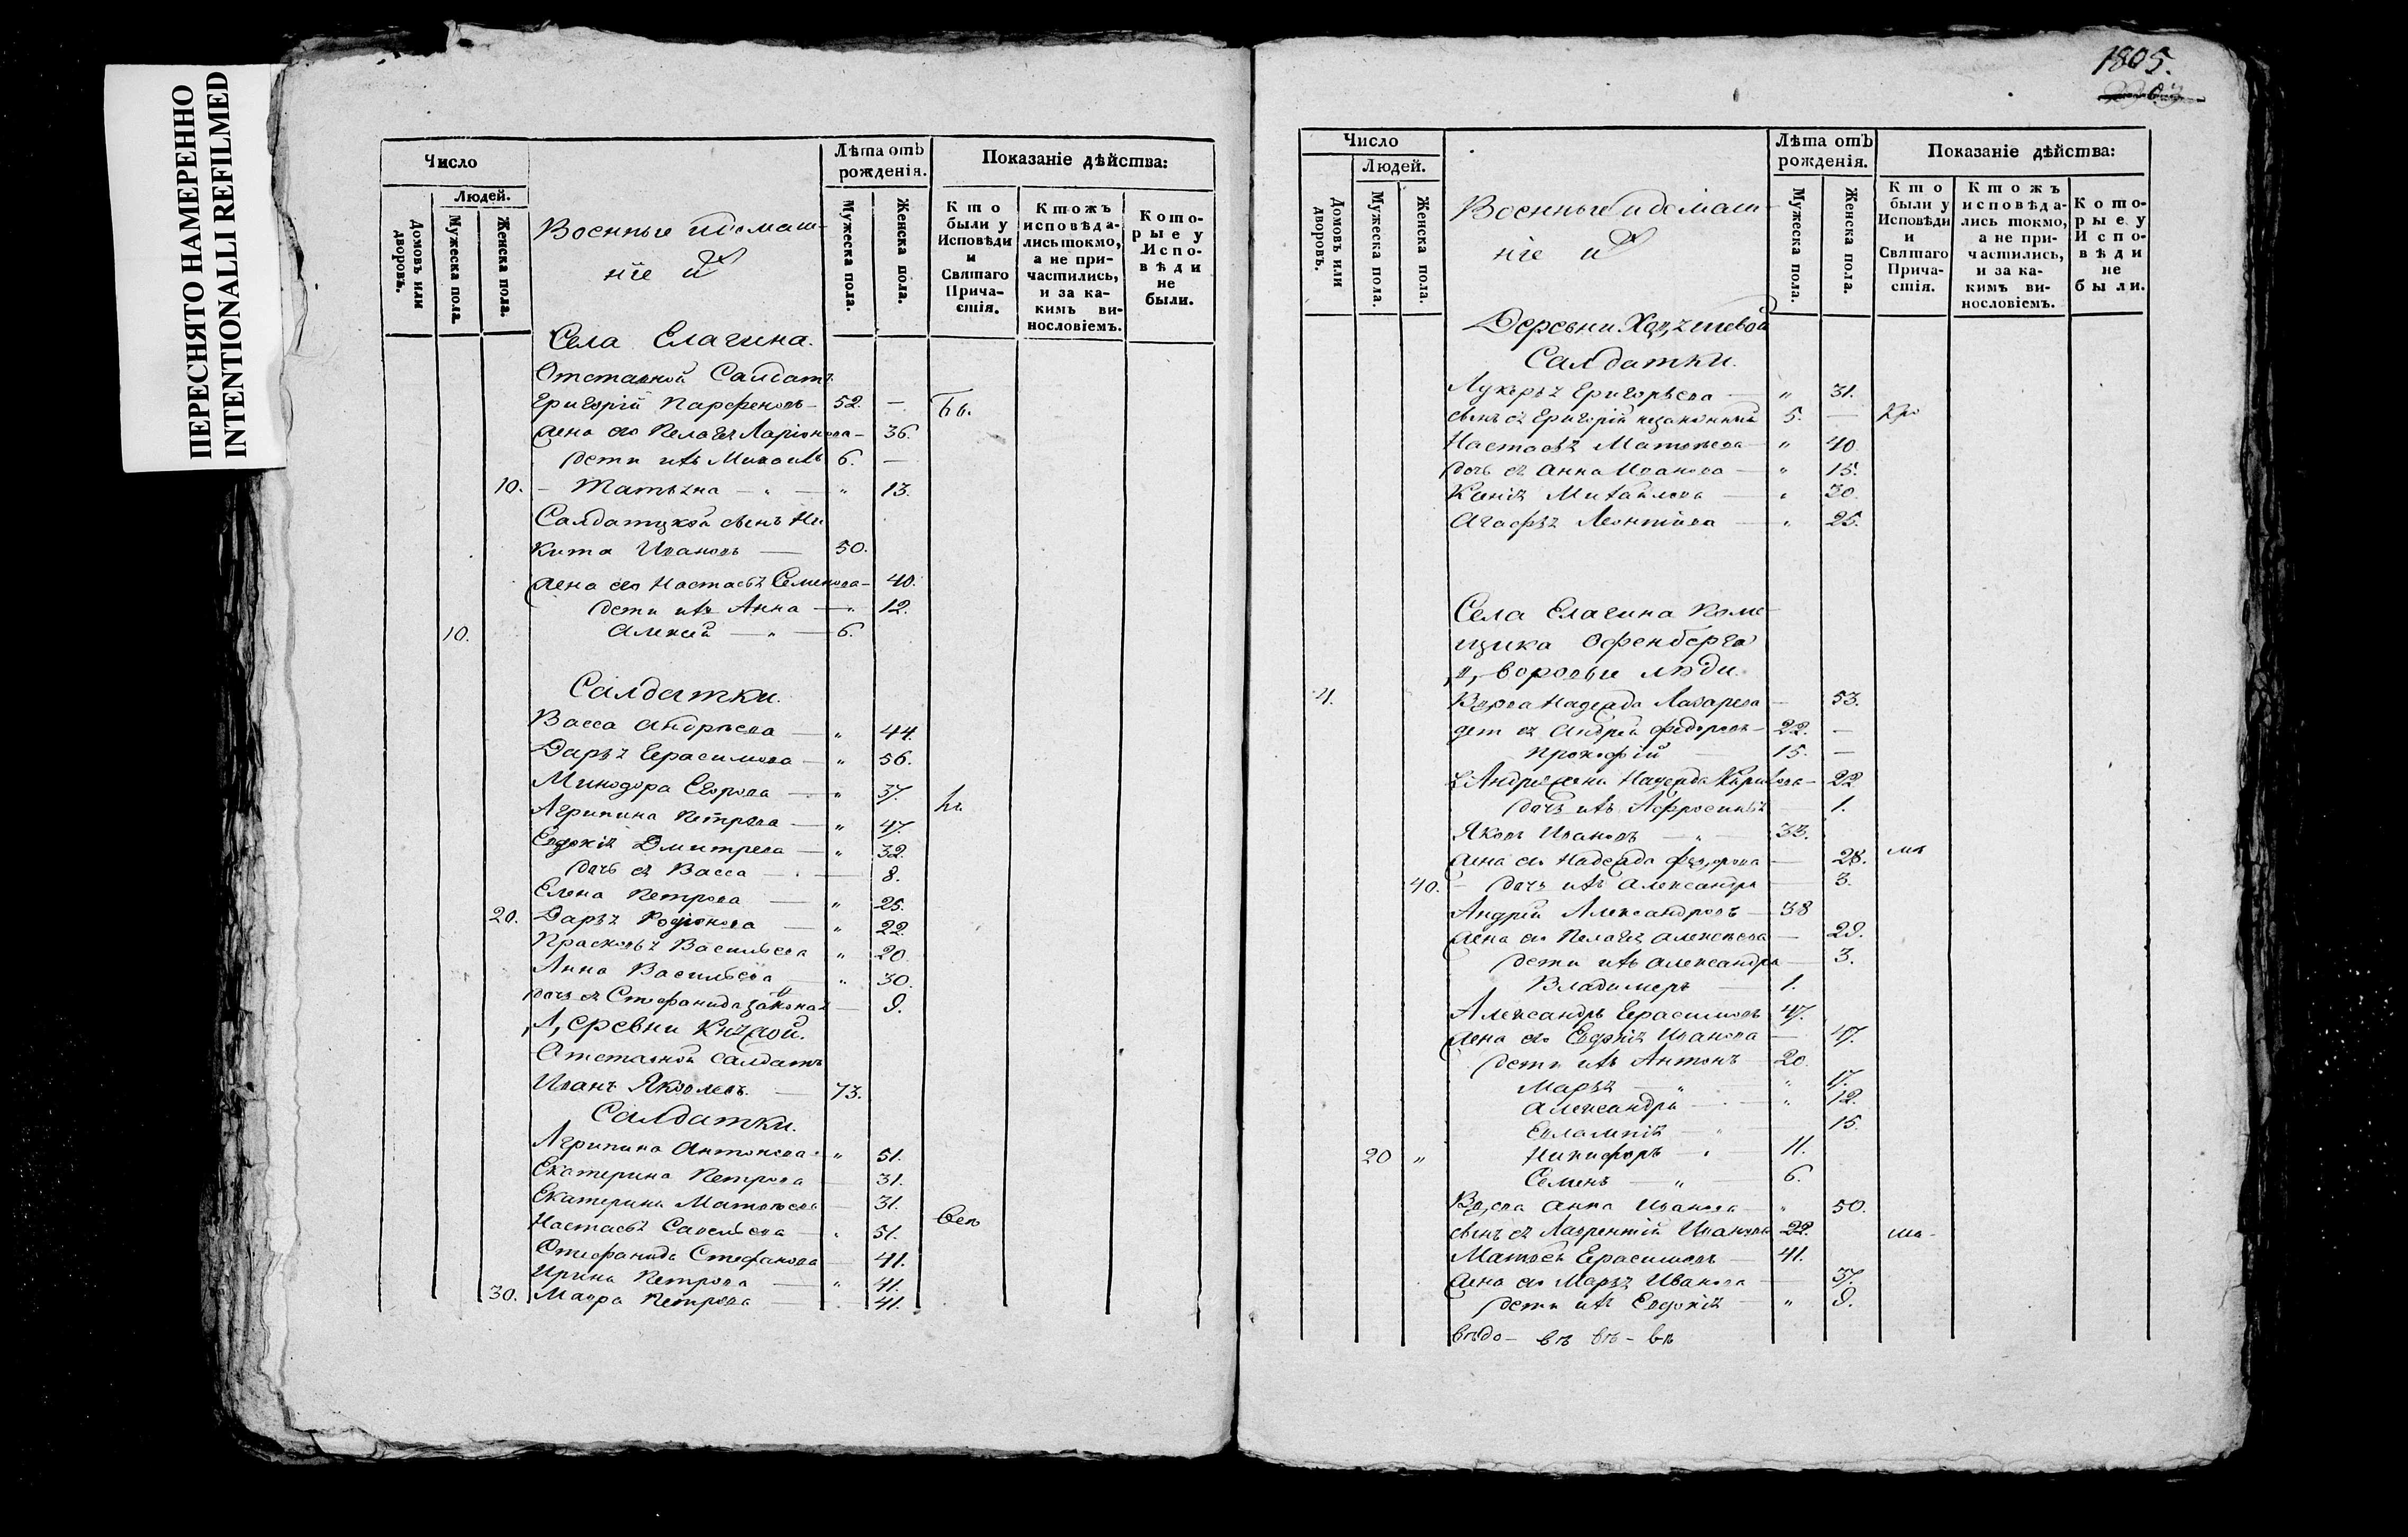 ПЕРЕСНЯТО НАМЕРЕННО
INTENTIONALLI REFILMED
Число
Людей.
Домовъ или дворовъ.
Мужеска пола.
Женска пола.
Военные идомаш-
нїе ихъ
Лѣта отъ рожденія.
Мужеска пола.
Женска пола.
Показаніе дѣйства:
Кто были у Исповѣди и Святаго Причастія.
Ктожъ исповѣдались токмо, а не причастились, и за какимъ винословіемъ.
Которые у Исповѣди не были.
Села Елагина.
Отставной Салдатъ
Григорїй Парфеновъ — 52. —
жена его Пелагея Ларїонова — 36.
дети ихъ Михаилъ 6. —
10. — Татьяна — „ — „ 13.
Салдатской сынъ Ни
кита Ивановъ — 50.
жена его Настасья Семенова — 40.
дети ихъ Анна — „ 12.
10. Алексей — „ — 6.
Салдатки.
Васса Андреева — „ 44.
Дарья Герасимова — „ 56.
Минодора Егорова — „ 37.
Агрипина Петрова — „ 47.
Евдокия Дмитрева — „ 32.
дочь ея Васса — 8.
Елена Петрова — „ 25.
20. Дарья Родїонова — „ 22.
Прасковья Васильева „ 20.
Анна Васильева — „ 30.
дочь ея Стефанида законная — 9.
Деревни Княжой.
Отставной Салдатъ
Иванъ Яковлевъ. — 73.
Салдатки.
Агрипина Антонова — „ 51.
Екатерина Петрова — 31.
Екатерина Матвеева — 31.
Настасья Савельева — „ 51.
Стефанида Стефанова — 41.
Ирина Петрова — „ 41.
30. Мавра Петрова — „ 41.
1805.
Число
Людей.
Домовъ или дворовъ.
Мужеска пола.
Женска пола.
Военные идомаш-
нїе ихъ
Лѣта отъ рожденія.
Мужеска пола.
Женска пола.
Показаніе дѣйства:
Кто были у Исповѣди и Святаго Причастія.
Ктожъ исповѣдались токмо, а не причастились, и за какимъ винословіемъ.
Которые у Исповѣди не были.
Деревни
Салдатки.
Лукерья Григорьева — „ 31.
сынъ ея Григорїй незаконный 5. —
Настасья Матвеева — „ 40
дочь ея Анна Иванова — „ 15.
Ксенїя Михайлова — „ 30.
Агафья Леонтїева — „ 25.
Села Елагина Поме
щика Офенберга
Дворовые люди.
4. Вдова Надежда Лазарева — 53.
дети ея Андрей Федоровъ — 22. —
Прокофїй — 15. —
у Андрея жена Надежда — 22
дочь ихъ Афросинья — 1.
Яковъ Ивановъ — „ — 33.
жена ево Надежда Федорова — 28.
40. — дочь ихъ Александра — 3.
Андрей Александровъ — 38
жена ево Пелагея Алексеева — 29.
дети ихъ Александра — 3.
Владимеръ — 1.
Александръ Герасимовъ 47.
жена ево Евдокїя Иванова — 47.
дети ихъ Антонъ 20.
Марья — „ — „ 17.
Александра — „ 12.
Евлампїя — „ — 15.
20 „ Никифоръ — „ — 11.
Семенъ — „ — 6.
Вдова Анна Иванова — „ 50.
сынъ ея Лаврентїй Ивановъ 22.
Матвей Герасимовъ — 41.
жена ево Марья Иванова — 37.
дети ихъ Евдокїя — „ 9.